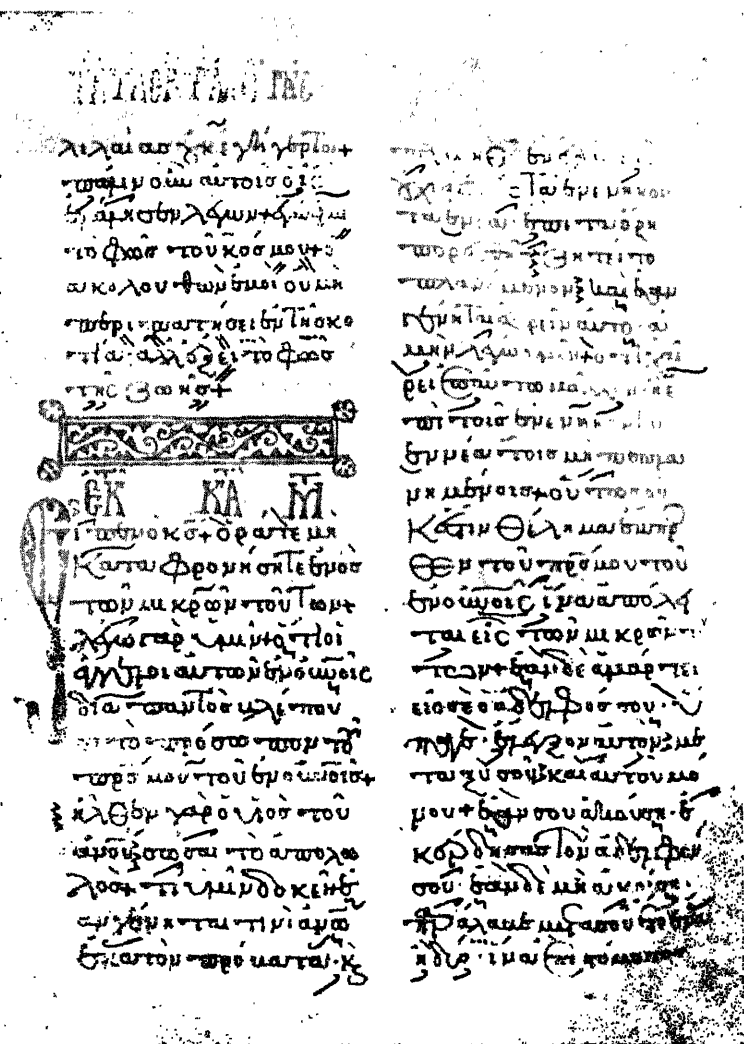 λιλαίας οὐκ ἐγήγερται+
πάλιν οὖν αὐτοῖς ὁ ἰ̅ς̅
ἐλάλησεν λέγων+ ἐγώ εἰμι
τὸ φῶς τοῦ κόσμου+ ὁ
ἀκολουθῶν ἐμοὶ οὐ μὴ
περιπατήσει ἐν τῆ σκο
τία· ἀλλ' ἕξει τὸ φῶς
τῆς ζωῆς+
ΕΚ ΚΑ ΜΤ
εἶπεν ὁ κ̅ς̅+ ὁρᾶτε μὴ
καταφρονήσητε ἑνὸς
τῶν μικρῶν τούτων+
λέγω γὰρ ὑμῖν+ ὅτι οἱ
ἄγγελοι αὐτῶν ἐν ο̅υ̅νοῖς
διαπαντὸς βλέπου
σι τὸ πρόσωπον τοῦ
π̅ρ̅ς̅ μου τοῦ ἐν ο̅υ̅νοῖς+
ἦλθεν γὰρ ὁ υἱὸς τοῦ
ἀ̅ν̅ου σῶσαι τὸ ἀπολω
λός+ τί ὑμῖν δοκεῖ ἐ
ὰν γένηταί τινι ἀ̅ν̅ω
ἑκατὸν πρόβατα· κ
τὰ ἐνενηκον
ταεννέα ἐπὶ τὰ ὄρη
ζητεῖ τὸ
πλανώμενον· καὶ ἐὰν
γένηται εὑρεῖν αὐτό· ἀ
μὴν λέγω ὑμῖν+ ὅτι χαί
ρει ἐπ' αὐτῶ μᾶλλον ἢ ἐ
πὶ τοῖς ἐνενήκοντα
ἐννέα τοῖς μὴ πεπλανη
μένοις+ οὕτως οὐκ
ἔστιν θέλημα ἔμπρο
σθεν τοῦ π̅ρ̅ς̅ μου τοῦ
ἐν ο̅υ̅νοῖς ἵνα ἀπόλη
ται εἷς τῶν μικρῶν
τούτων+ ἐὰν δὲ ἁμαρτήσει
εἰς σὲ ὁ ἀδελφός σου· ὕ
παγε· ἔλεγξον αὐτὸν με
ταξύ σου καὶ αὐτοῦ μό
νου+ ἐάν σου ἀκούση· ἐ
κέρδησας τὸν ἀδελφόν
σου· ἐὰν δὲ μὴ ἀκούση·
παράλαβε μετὰ σοῦ
ἢ δύο· ἵνα ἐπὶ στόματος